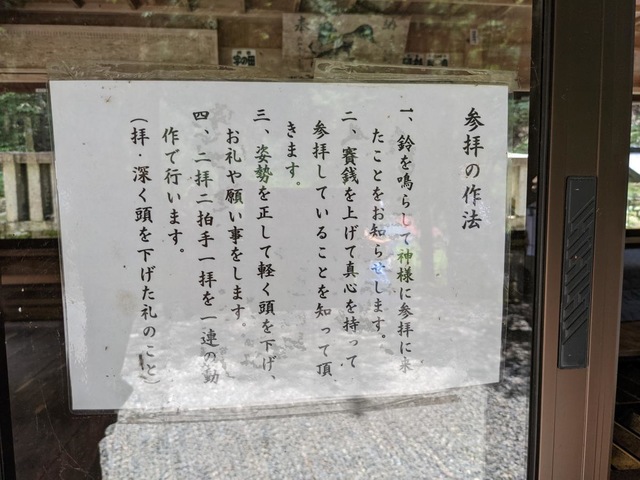 参拝の作法
一、鈴を鳴らして神様に参拝に来
たことをお知らせします。
二、賽銭を上げて真心を持って
参拝していることを知って頂
きます。
三、姿勢を正して軽く頭を下げ、
お礼や願い事をします。
四、二拝二拍手一拝を一連の動
作で行います。
(拝・深く頭を下げた礼のこと)